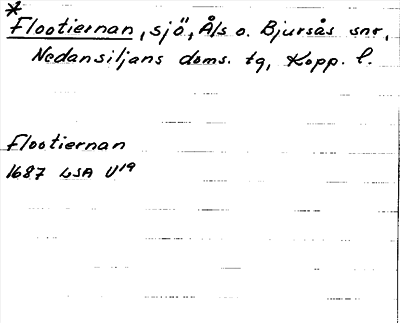 *
Flootiernan, sjö, Åls o. Bjursås snr,
Nedansiljans doms. tg, Kopp. l.
Flootiernan
1687 LSA U19